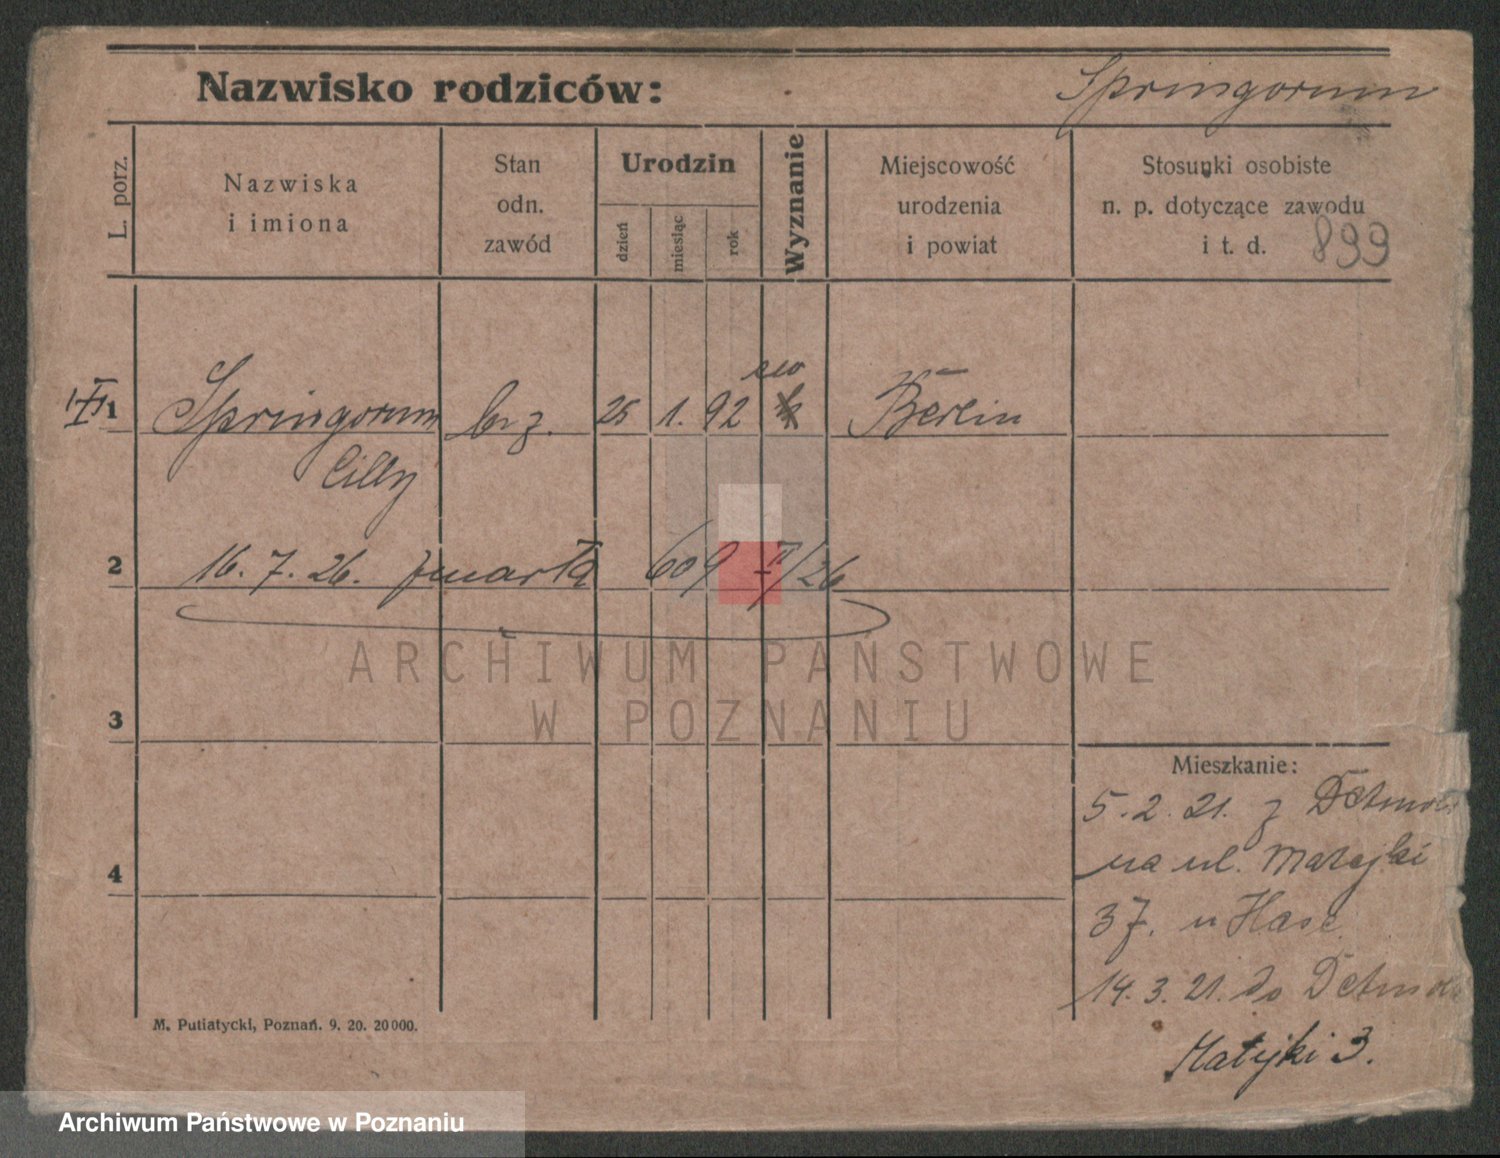 Nazwisko rodziców: Springorum
L. porz.
Nazwiska
i imiona
Stan
odn.
zawód
Urodzin
dzień
miesiąc
rok
Wyznanie
Miejscowość
urodzenia
i powiat
Stosunki osobiste
n. p. dotyczące zawodu
i t. d. 899
1 Springorum brz. 25 1. 92 ew Berlin
Cilly
2 16. 7. 26. zmarła 609 II/26
ARCHIWUM PAŃSTWOWE
W POZNANIU
3
Mieszkanie:
5. 2. 21. z Detmold
na ul. Matejki
4
37. u Hase
14. 3. 21. do Detmold
M. Putiatycki, Poznań. 9. 20. 20000.
Matejki 3.
Archiwum Państwowe w Poznaniu